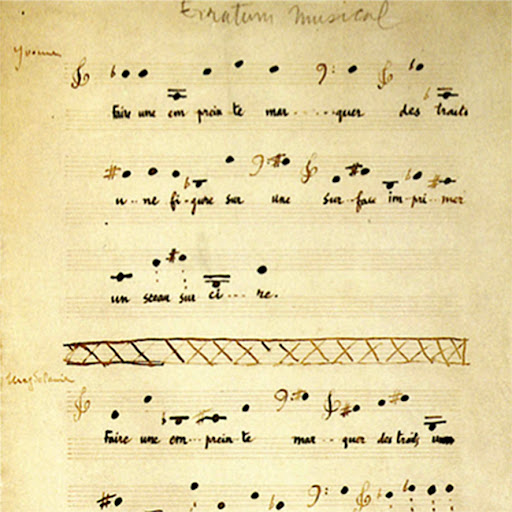 Erratum Musical
Yvonne
Faire une em prein te mar - - - - - quer des traits
u - - ne fi - gure sur une sur - face im - pri - mer
un sceau sur ci - - - re.
Magdeleine
Faire une em - - prein - te mar - - quer des traits